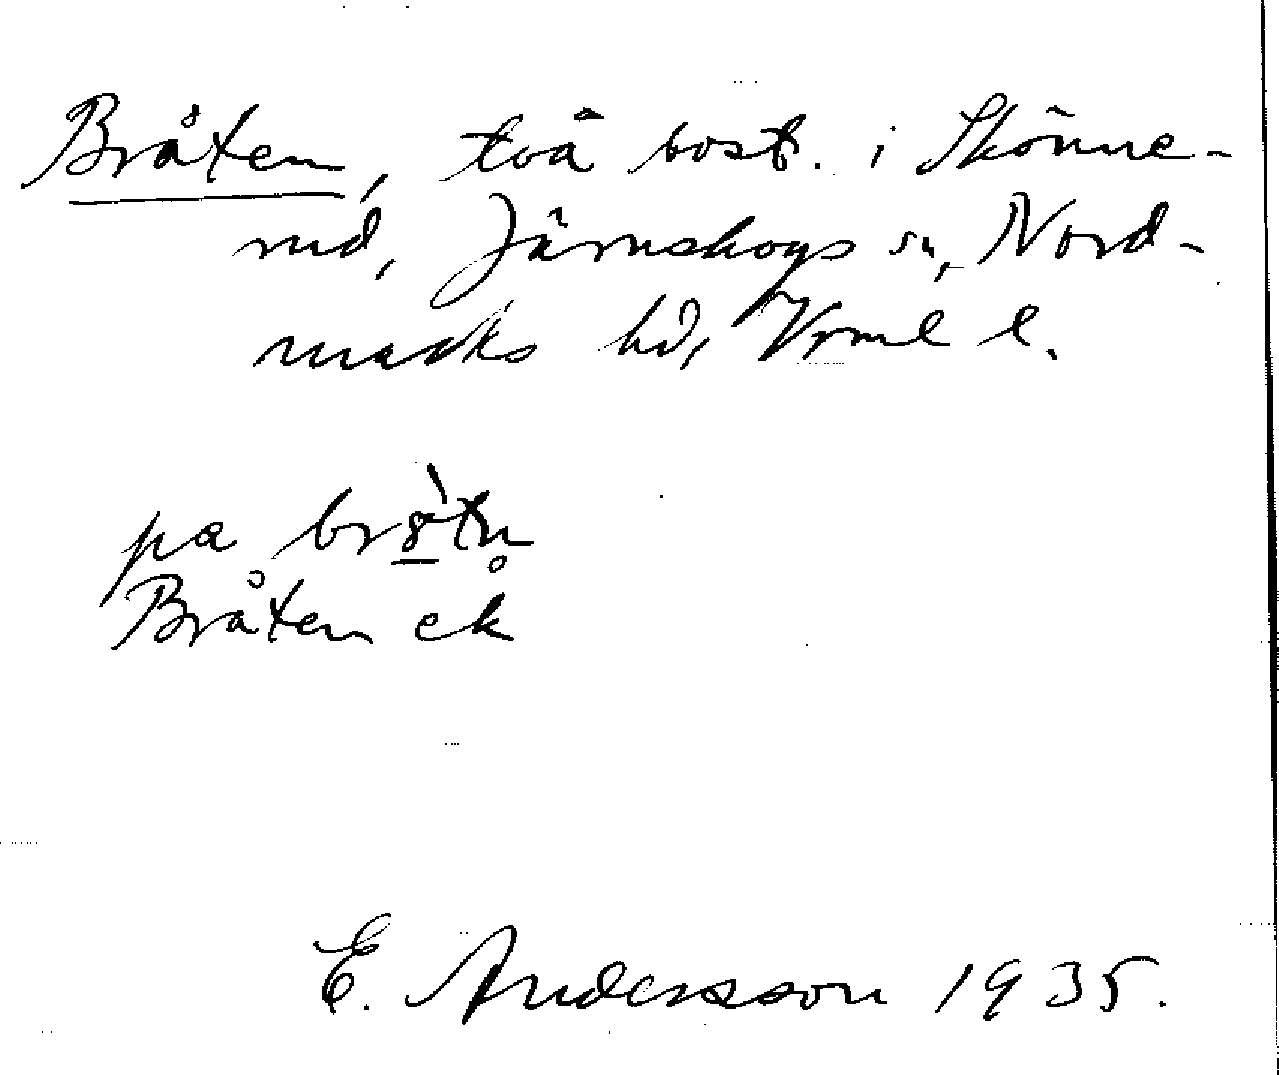 Bråten, två bost. i Skönne-
rud, Järnskogs sn, Nord-
marks hd, Vrml l.
pa brò̲tn̥
Bråten ek
E. Andersson 1935.